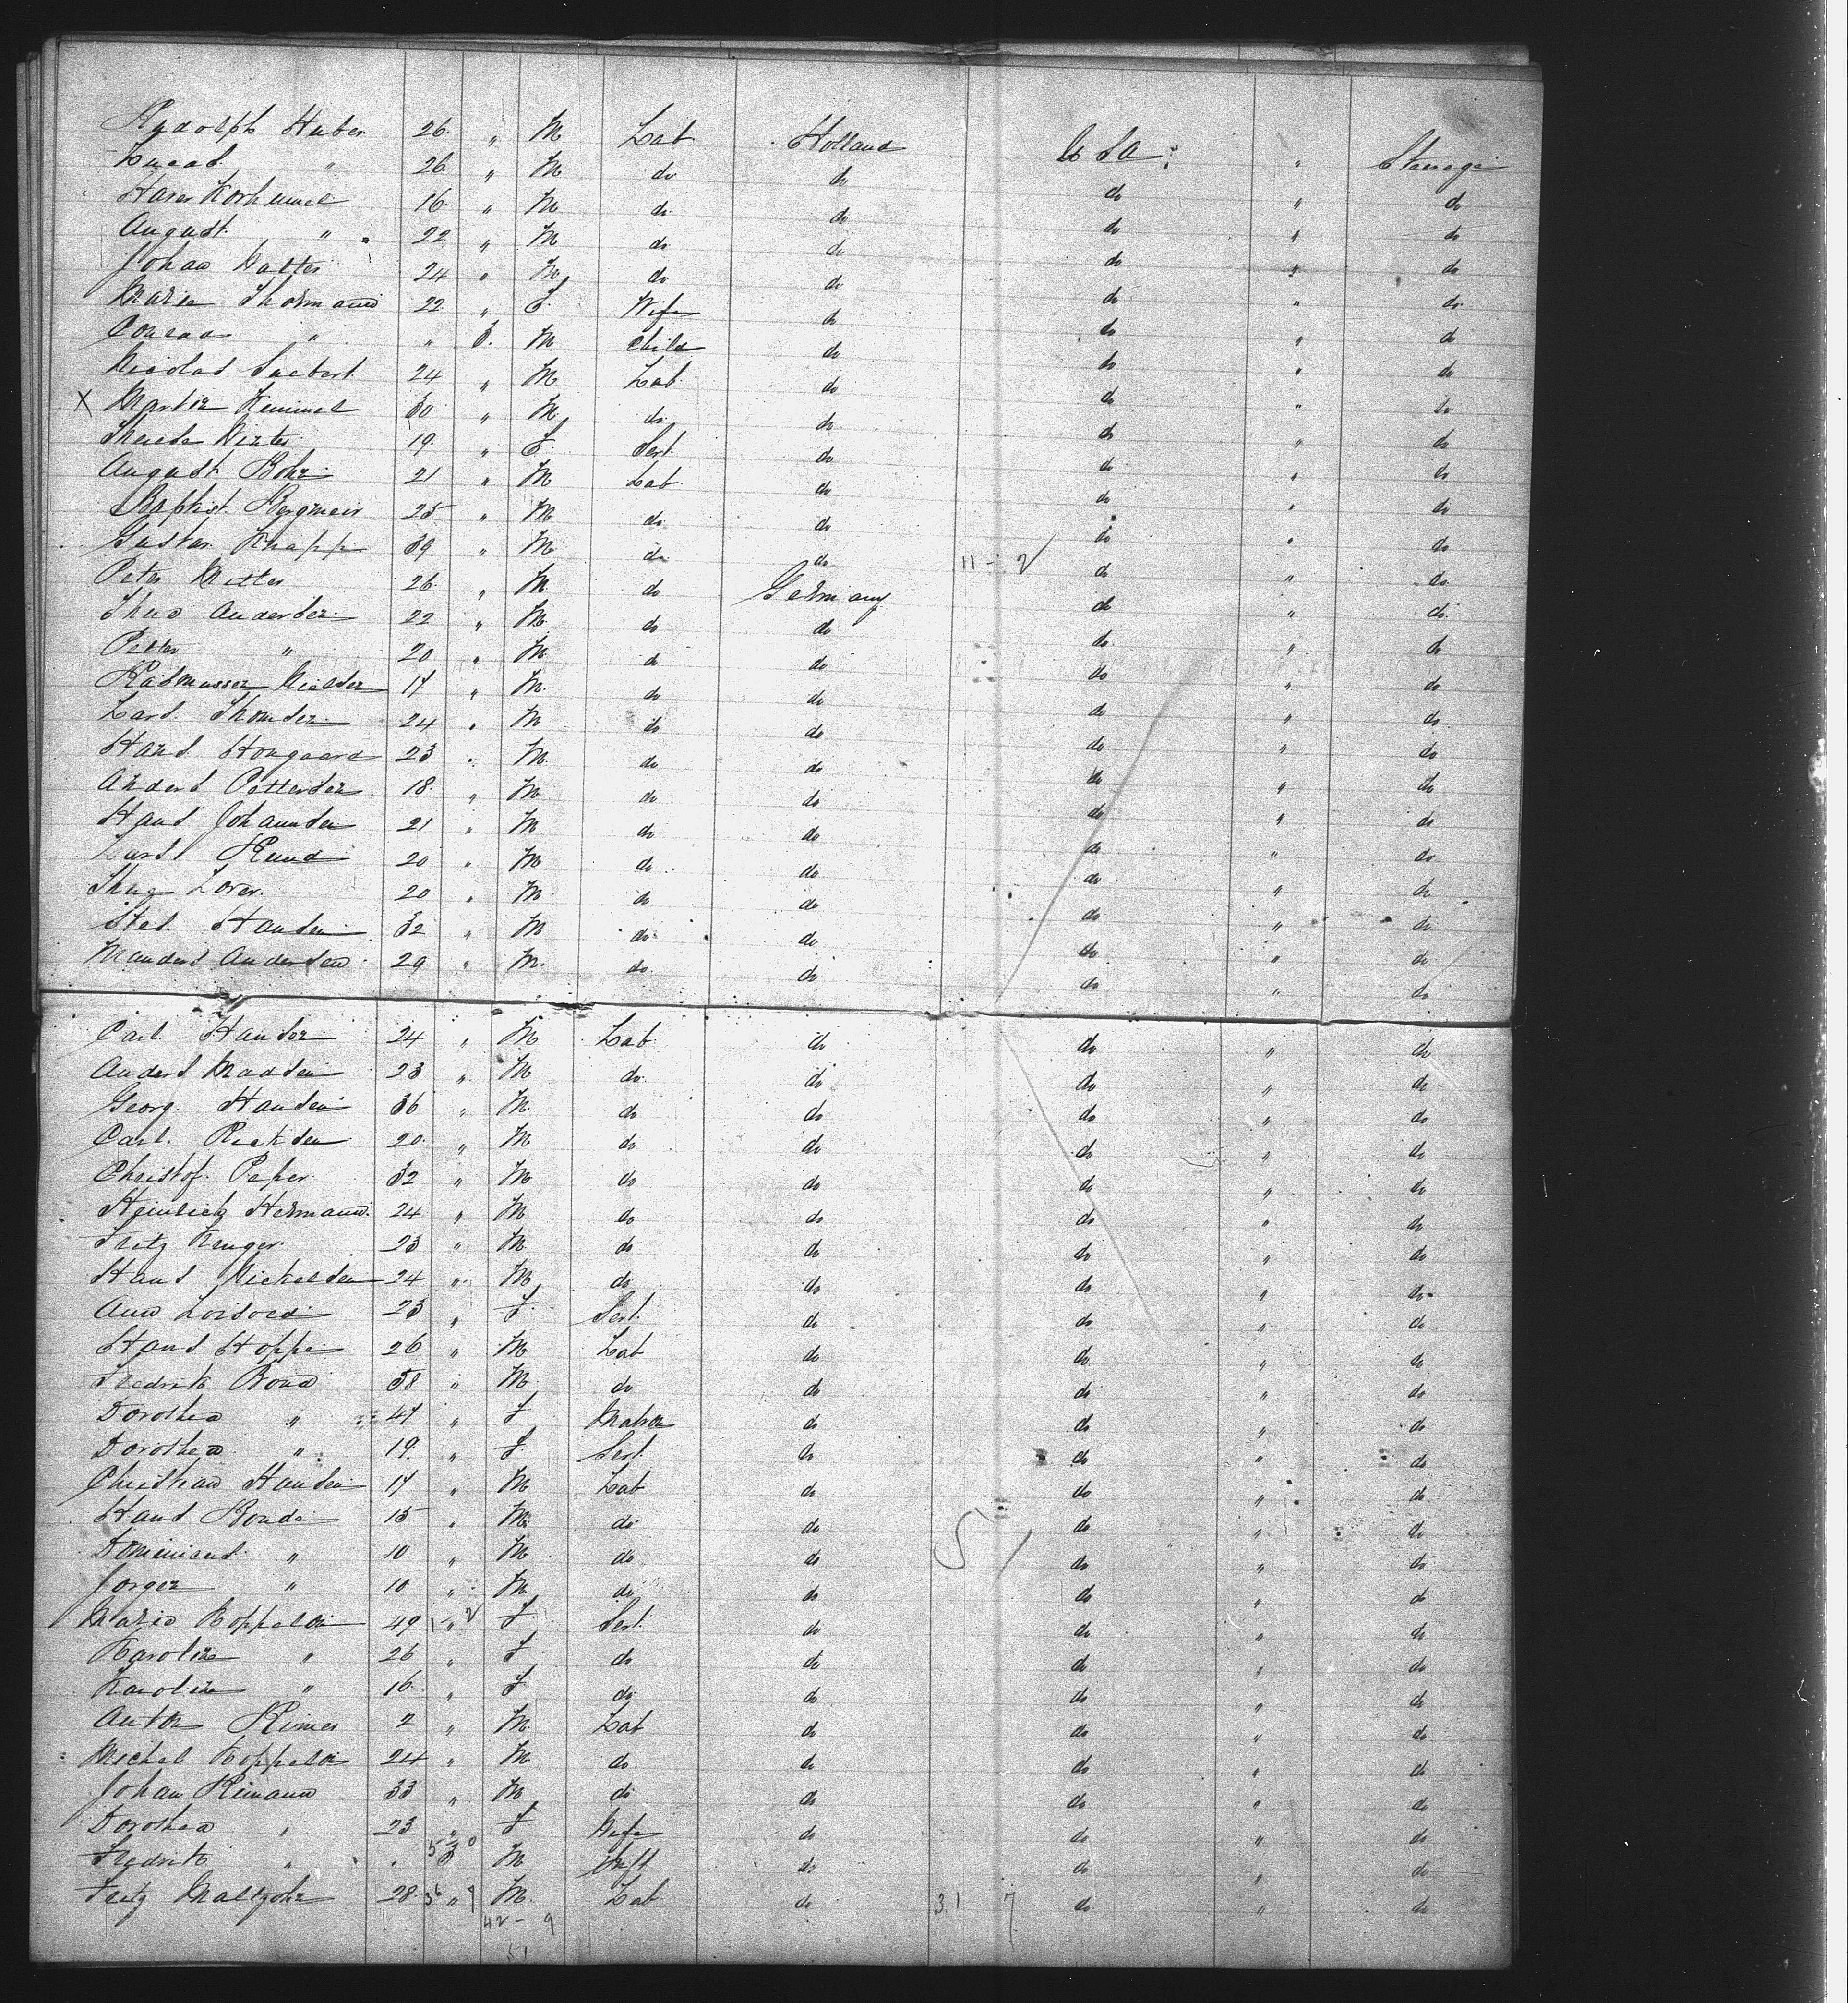 Rudolph Huber 26 " M Lab Holland U S A " Steerage
Lucas " 26 " M do do do " do
Haver Korhummel 16 " M do do do " do
August " 22 " M do do do " do
Johan Walter 24 " M do do do " do
Maria Thormann 22 " F Wife do do " do
Conrad " " 3 M Child do do " do
Nicolas Siebert 24 " M Lab do do " do
X Martin Kemmel 30 " M do do do " do
Winter 19 " F Sert do do " do
August Bohn 21 " M Lab do do " do
Baptist Bergmeir 25 " M do do do " do
Gustav Knapp 39 " M do do 11 - 2 do " do
Peter Mitter 26 " M do Germany do " do
Thus Andersen 22 " M do do do " do
Petter " 20 " M do do do " do
Rasmussen Nielsen 17 " M do do do " do
Lars Thomsen 24 " M do do do " do
Hans Hougaard 23 " M do do do " do
Anders Pettersen 18 " M do do do " do
Hans Johannsen 21 " M do do do " do
Lars Kund 20 " M do do do " do
Lover 20 " M do do do " do
Hansen 32 " M do do do " do
Manders Andersen 29 " M do do do " do
Carl Hansen 24 " M Lab do do " do
Anders Madsen 23 " M do do do " do
Georg Hansen 36 " M do do do " do
Carl Rieksen 20 " M do do do " do
Christof Peper 32 " M do do do " do
Heinrich Hermann 24 " M do do do " do
Fritz Kruger 23 " M do do do " do
Hans Nickelsen 24 " M do do do " do
Ann 23 " F Sert do do " do
Hans Hoppe 26 " M Lab do do " do
Fredrik Bond 58 " M do do do " do
Dorothea " 47 " F Matron do do " do
Dorothea " 19 " F Sert do do " do
Christian Hansen 17 " M Lab do do " do
Hans Bonde 15 " M do do do " do
" 10 " M do do 51 do " do
Jorgen " 10 " M do do do " do
Maria Koppelon 49 1 - 2 " F Sert do do " do
Karoline " 26 " F do do do " do
Karoline " 16 " F do do do " do
Anton Rimer 2 " M Lab do do " do
Michel Koppelon 24 " M do do do " do
Johan Rimann 33 " M do do do " do
Dorothea " 23 " F Wife do do " do
Fredrik " " 3 M Inft do do " do
Fritz Maltzohn 28 36 " 9 M Lab do 31 7 do " do
42 - 9
51